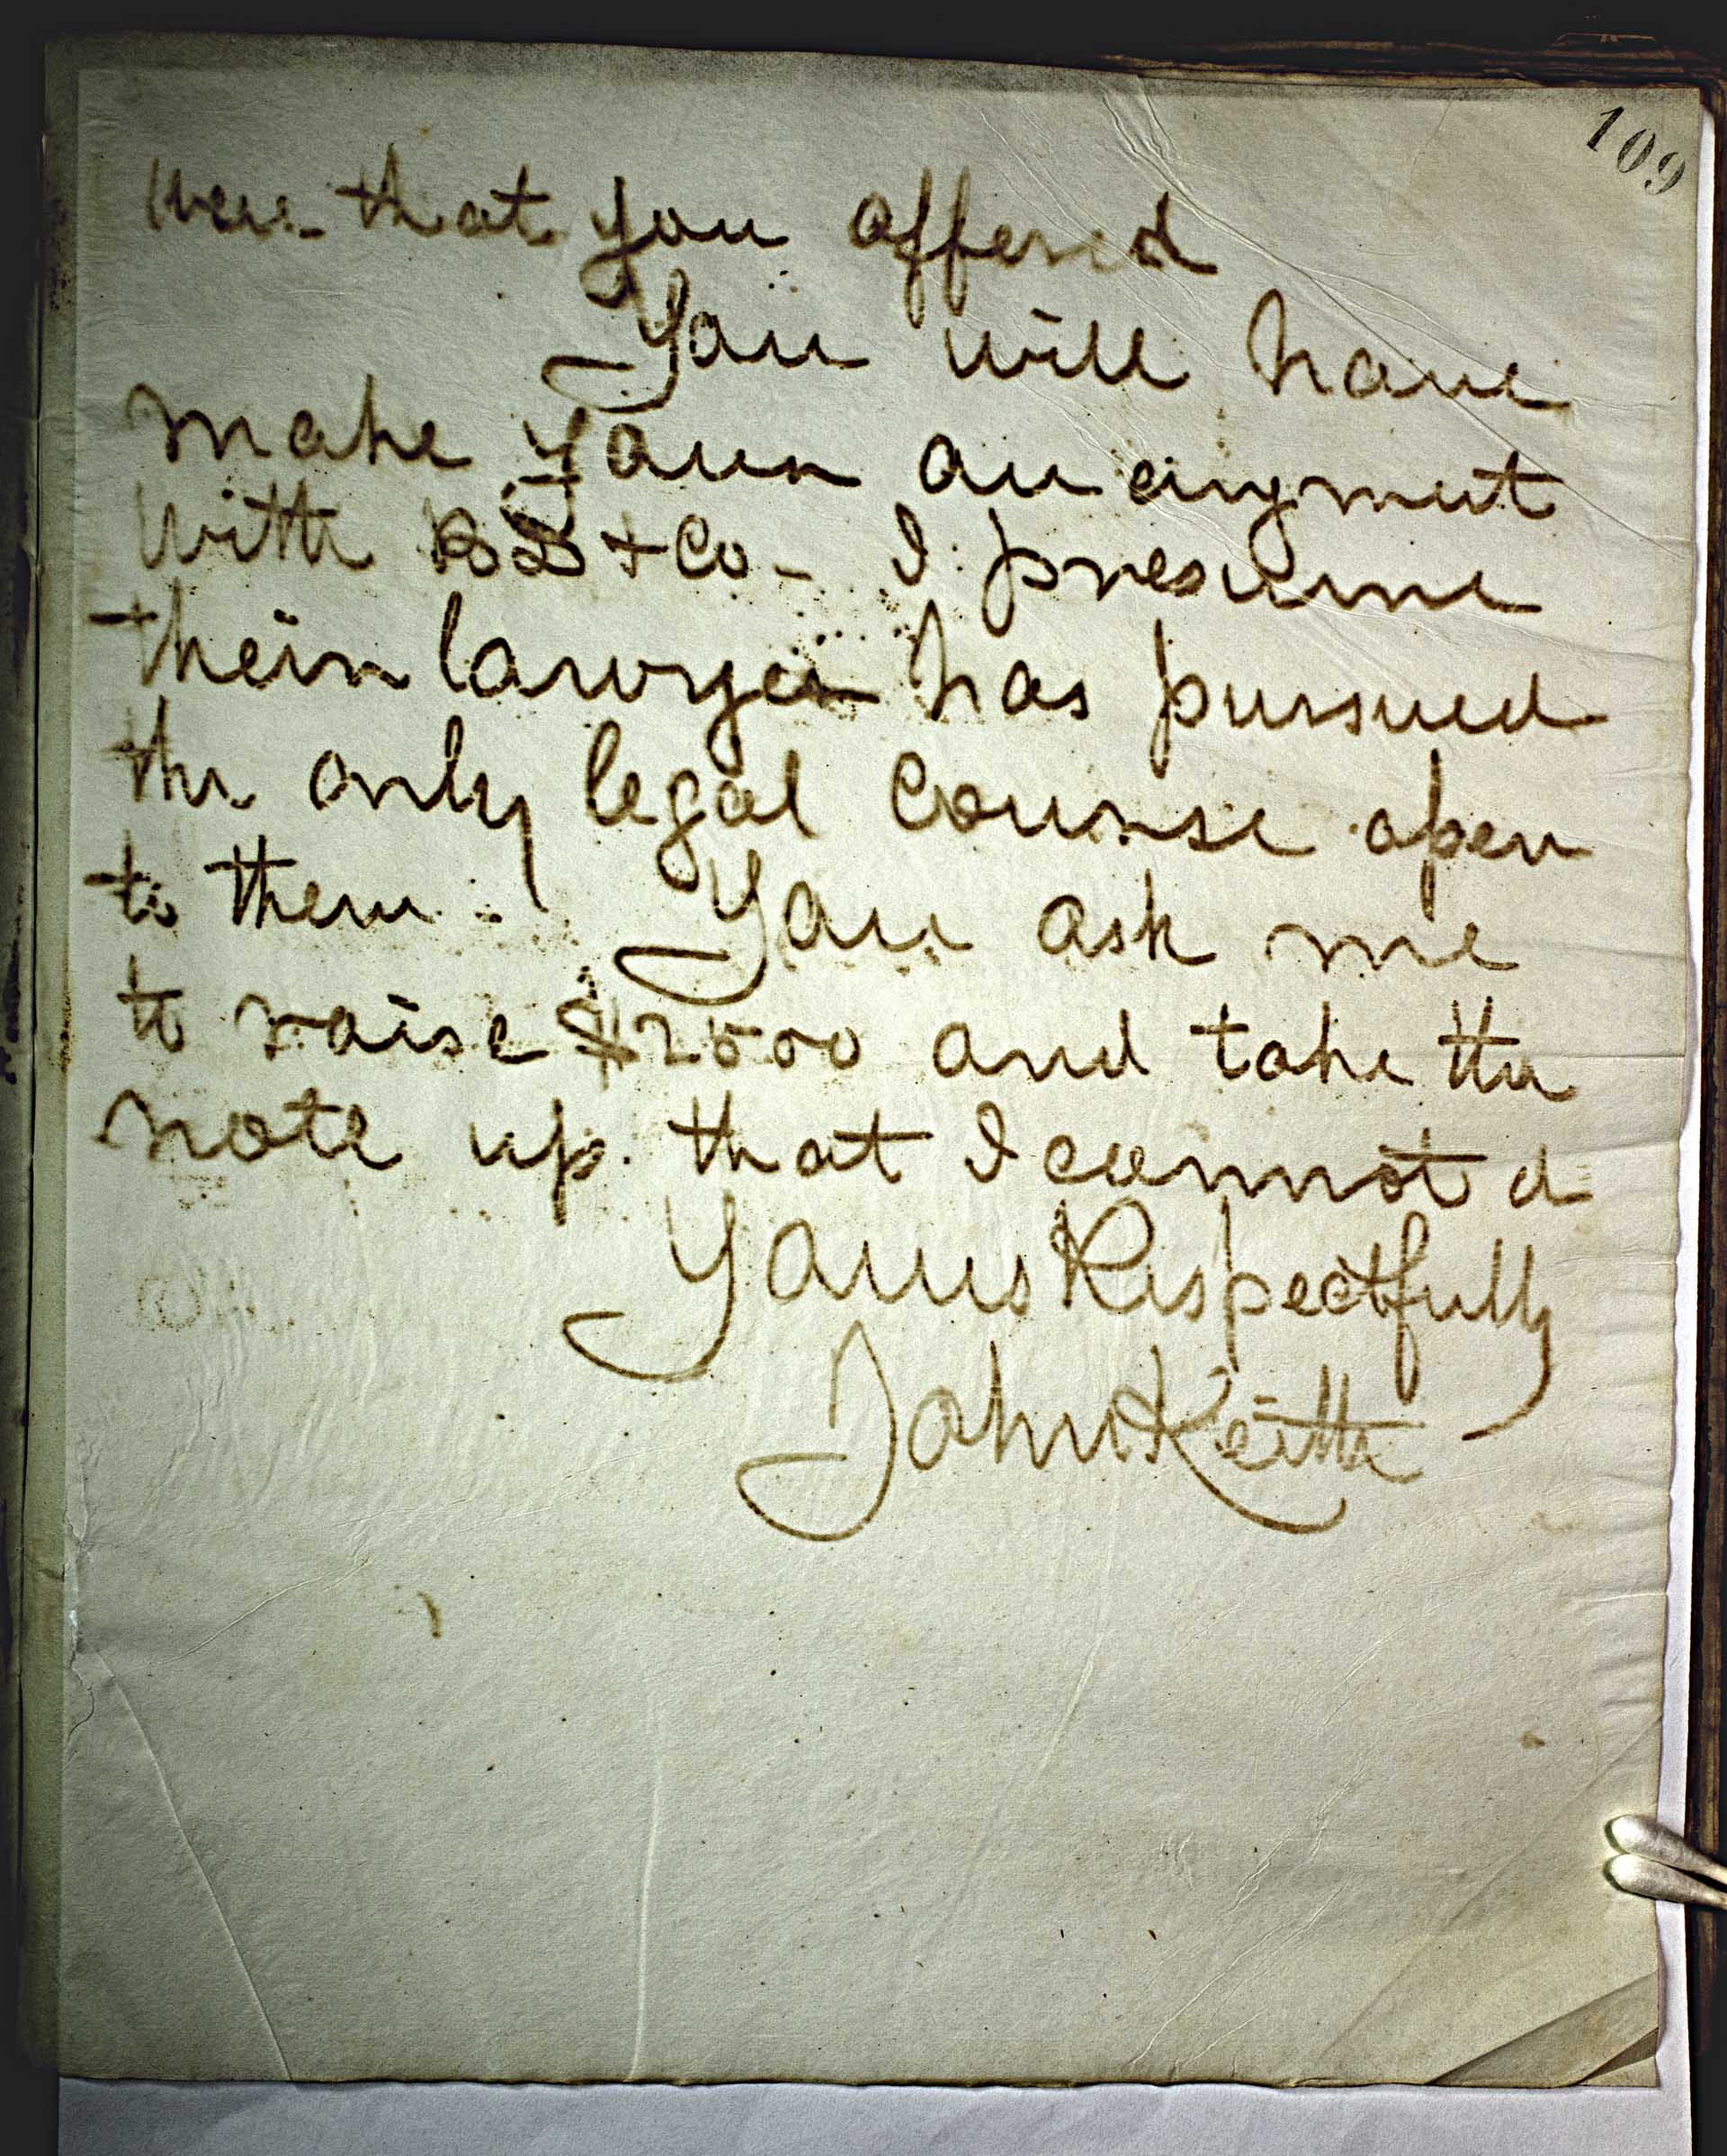 109
that you offered
You will have
make your arraingment
with BD + Co - I presume
their lawyer has pursued
the only legal course open
to them. You ask me
to raise $2500 and take the
note up. that I cannot d
Yours Respectfully
John Keith